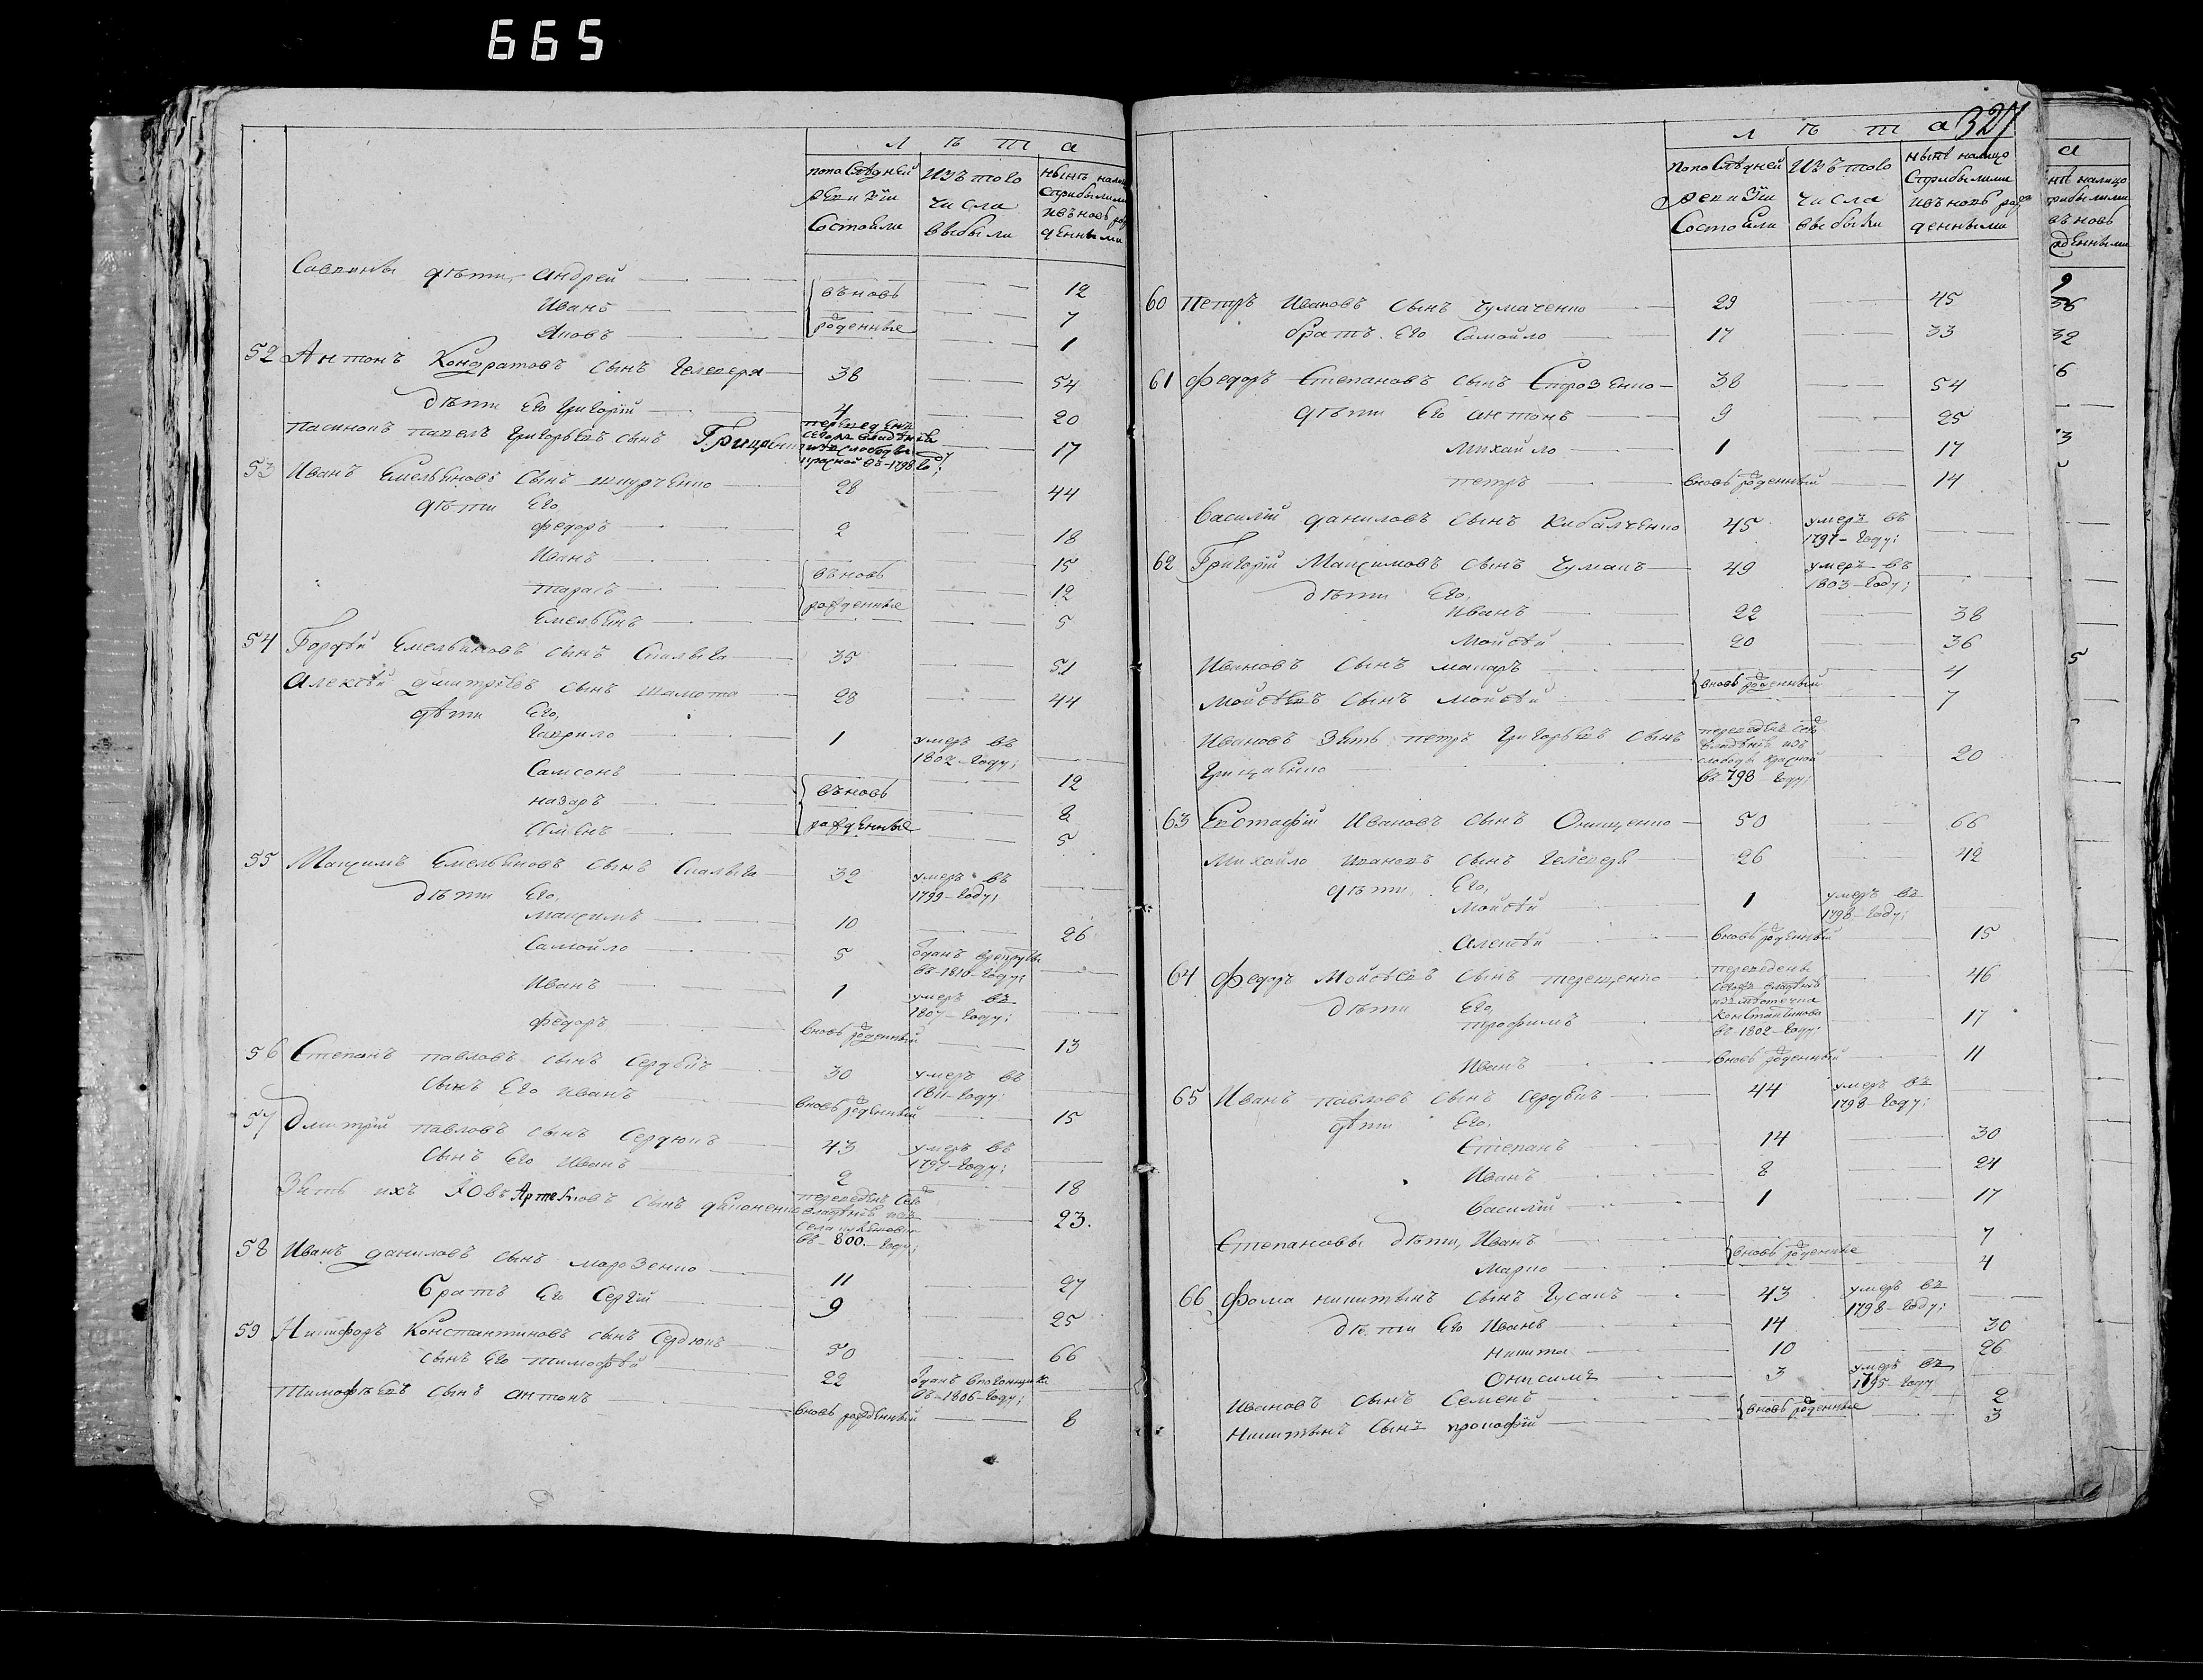 665
л ѣ т а
попослѣдней изъ того нынѣ нали
ревизіи числа сприбылыми
состояли выбыли ивъновь рож
денными
Савины дѣти, андрей 12
Иванъ въновь 7
Яковъ рожденные 1
52 Антонъ Кондратовъ сынъ Телеперя 38 54
дѣти Его григорій 4 20
пасинокъ павелъ григорьевъ сынъ Грицаенко переведенъ 17
изъ слободы
красной въ-1798 году;
53 Иванъ Емельяновъ сынъ шкурченко 28 44
дѣти Его,
федоръ 2 18
Иванъ 15
тарасъ въновь 12
Емельянъ рожденные 5
54 Гордѣй Емельяновъ сынъ Скалыга 35 51
Алексѣй дмитріевъ сынъ шамота 28 44
дѣти Его,
гаврило 1 умеръ въ
1802-году;
Самсонъ 12
назаръ въновь 8
семенъ рожденные 5
55 Максимъ Емельяновъ сынъ Скалыга 32 умеръ въ
1799-году;
дѣти Его,
максимъ 10 26
Самойло 5 отданъ врекруты
въ-1810-году;
Иванъ 1 умеръ въ
1807-году;
федоръ вновь рожденный 13
56 Степанъ павловъ сынъ Сердюкъ 30 умеръ въ
1811-году;
сынъ Его Иванъ вновь рожденный 15
57 Дмитрій павловъ сынъ Сердюкъ 43 умеръ въ
1797-году;
сынъ Его Иванъ 2 18
Зять ихъ Іовъ Артемовъ сынъ переведенъ сего 23.
владѣнія изъ
села
въ-800-году;
58 Иванъ даниловъ сынъ морозенко 11 27
братъ Его Сергій 9 25
59 Никифоръ Константиновъ сынъ Сердюкъ 50 66
сынъ Его тимофѣй 22 отданъ
въ-1806-году;
Тимофѣевъ сынъ антонъ вновь рожденный 8
л ѣ т а 327
попослѣдней изъ того нынѣ налицо
ревизіи числа сприбылыми
состояли выбыли ивъновь рож
денными
60 петръ Ивановъ сынъ чумаченко 29 45
братъ Его Самойло 17 33
61 федоръ Степановъ сынъ Строзенко 38 54
дѣти Его антонъ 9 25
михайло 1 17
петръ вновь рожденный 14
Василій даниловъ сынъ Кибалченко 45 умеръ въ
1797-году;
62 Григорій Максимовъ сынъ чумакъ 49 умеръ въ
1803-году;
дѣти Его,
Иванъ 22 38
Мойсѣй 20 36
Ивановъ сынъ макаръ 4
мойсѣевъ сынъ мойсѣй вновь рожденный 7
Ивановъ Зять петръ григорьевъ сынъ переведенъ сего
владѣнія изъ
Грицаенко слободы красной 20
въ 798 году;
63 Евстафій Ивановъ сынъ Онищенко 50 66
михайло ивановъ сынъ телеперя 26 42
дѣти Его,
Мойсѣй 1 умеръ въ
1798-году;
Алексѣй вновь рожденный 15
64 федоръ Мойсѣевъ сынъ терещенко переведенъ 46
сего владѣнія
дѣти Его, изъ местечка
трофимъ Константинова 17
въ-1802-году;
Иванъ вновь рожденный 11
65 Иванъ павловъ сынъ Сердюкъ 44 умеръ въ
1798-году;
дѣти Его,
Степанъ 14 30
Иванъ 8 24
Василій 1 17
Степановы дѣти, Иванъ 7
марко вновь рожденные 4
66 фома никитинъ сынъ гусакъ 43 умеръ въ
1798-году;
дѣти Его Иванъ 14 30
никита 10 26
Онисимъ 3 умеръ въ
1795-году
Ивановъ сынъ Семенъ 2
Никитинъ сынъ прокофій вновь рожденные 3
а
нѣ налицо
прибылыми
въновь
жденными
32
5